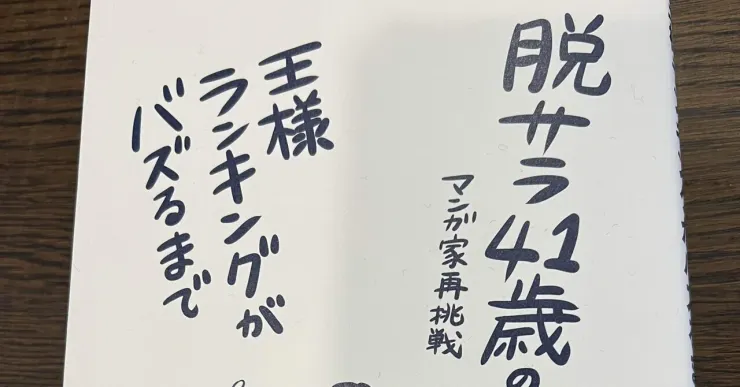 脱サラ41歳の
マンガ家再挑戦
王様
ランキングが
バズるまで